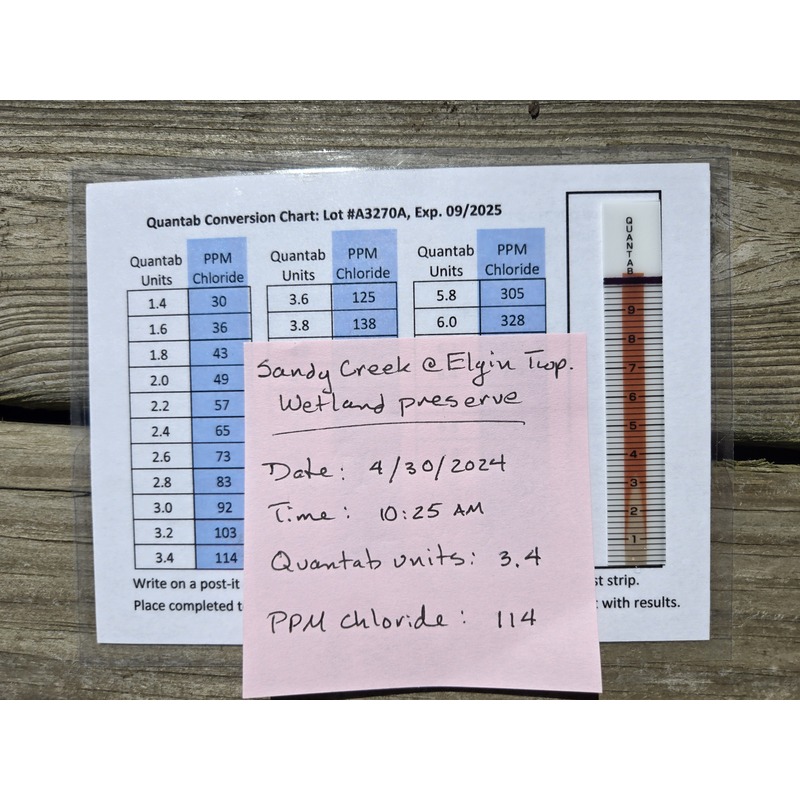 Quantab Conversion Chart: Lot #A3270A, Exp. 09/2025
Quantab Units PPM Chloride
1.4 30
1.6 36
1.8 43
2.0 49
2.2 57
2.4 65
2.6 73
2.8 83
3.0 92
3.2 103
3.4 114
Quantab Units PPM Chloride
3.6 125
3.8 138
Quantab Units PPM Chloride
5.8 305
6.0 328
Write on a post-it
st strip.
Place completed t
with results.
Sandy Creek @ Elgin Twp.
Wetland preserve
Date: 4/30/2024
Time: 10:25 AM
Quantab units: 3.4
PPM chloride: 114
QUANTAB
9
8
7
6
5
4
3
2
1